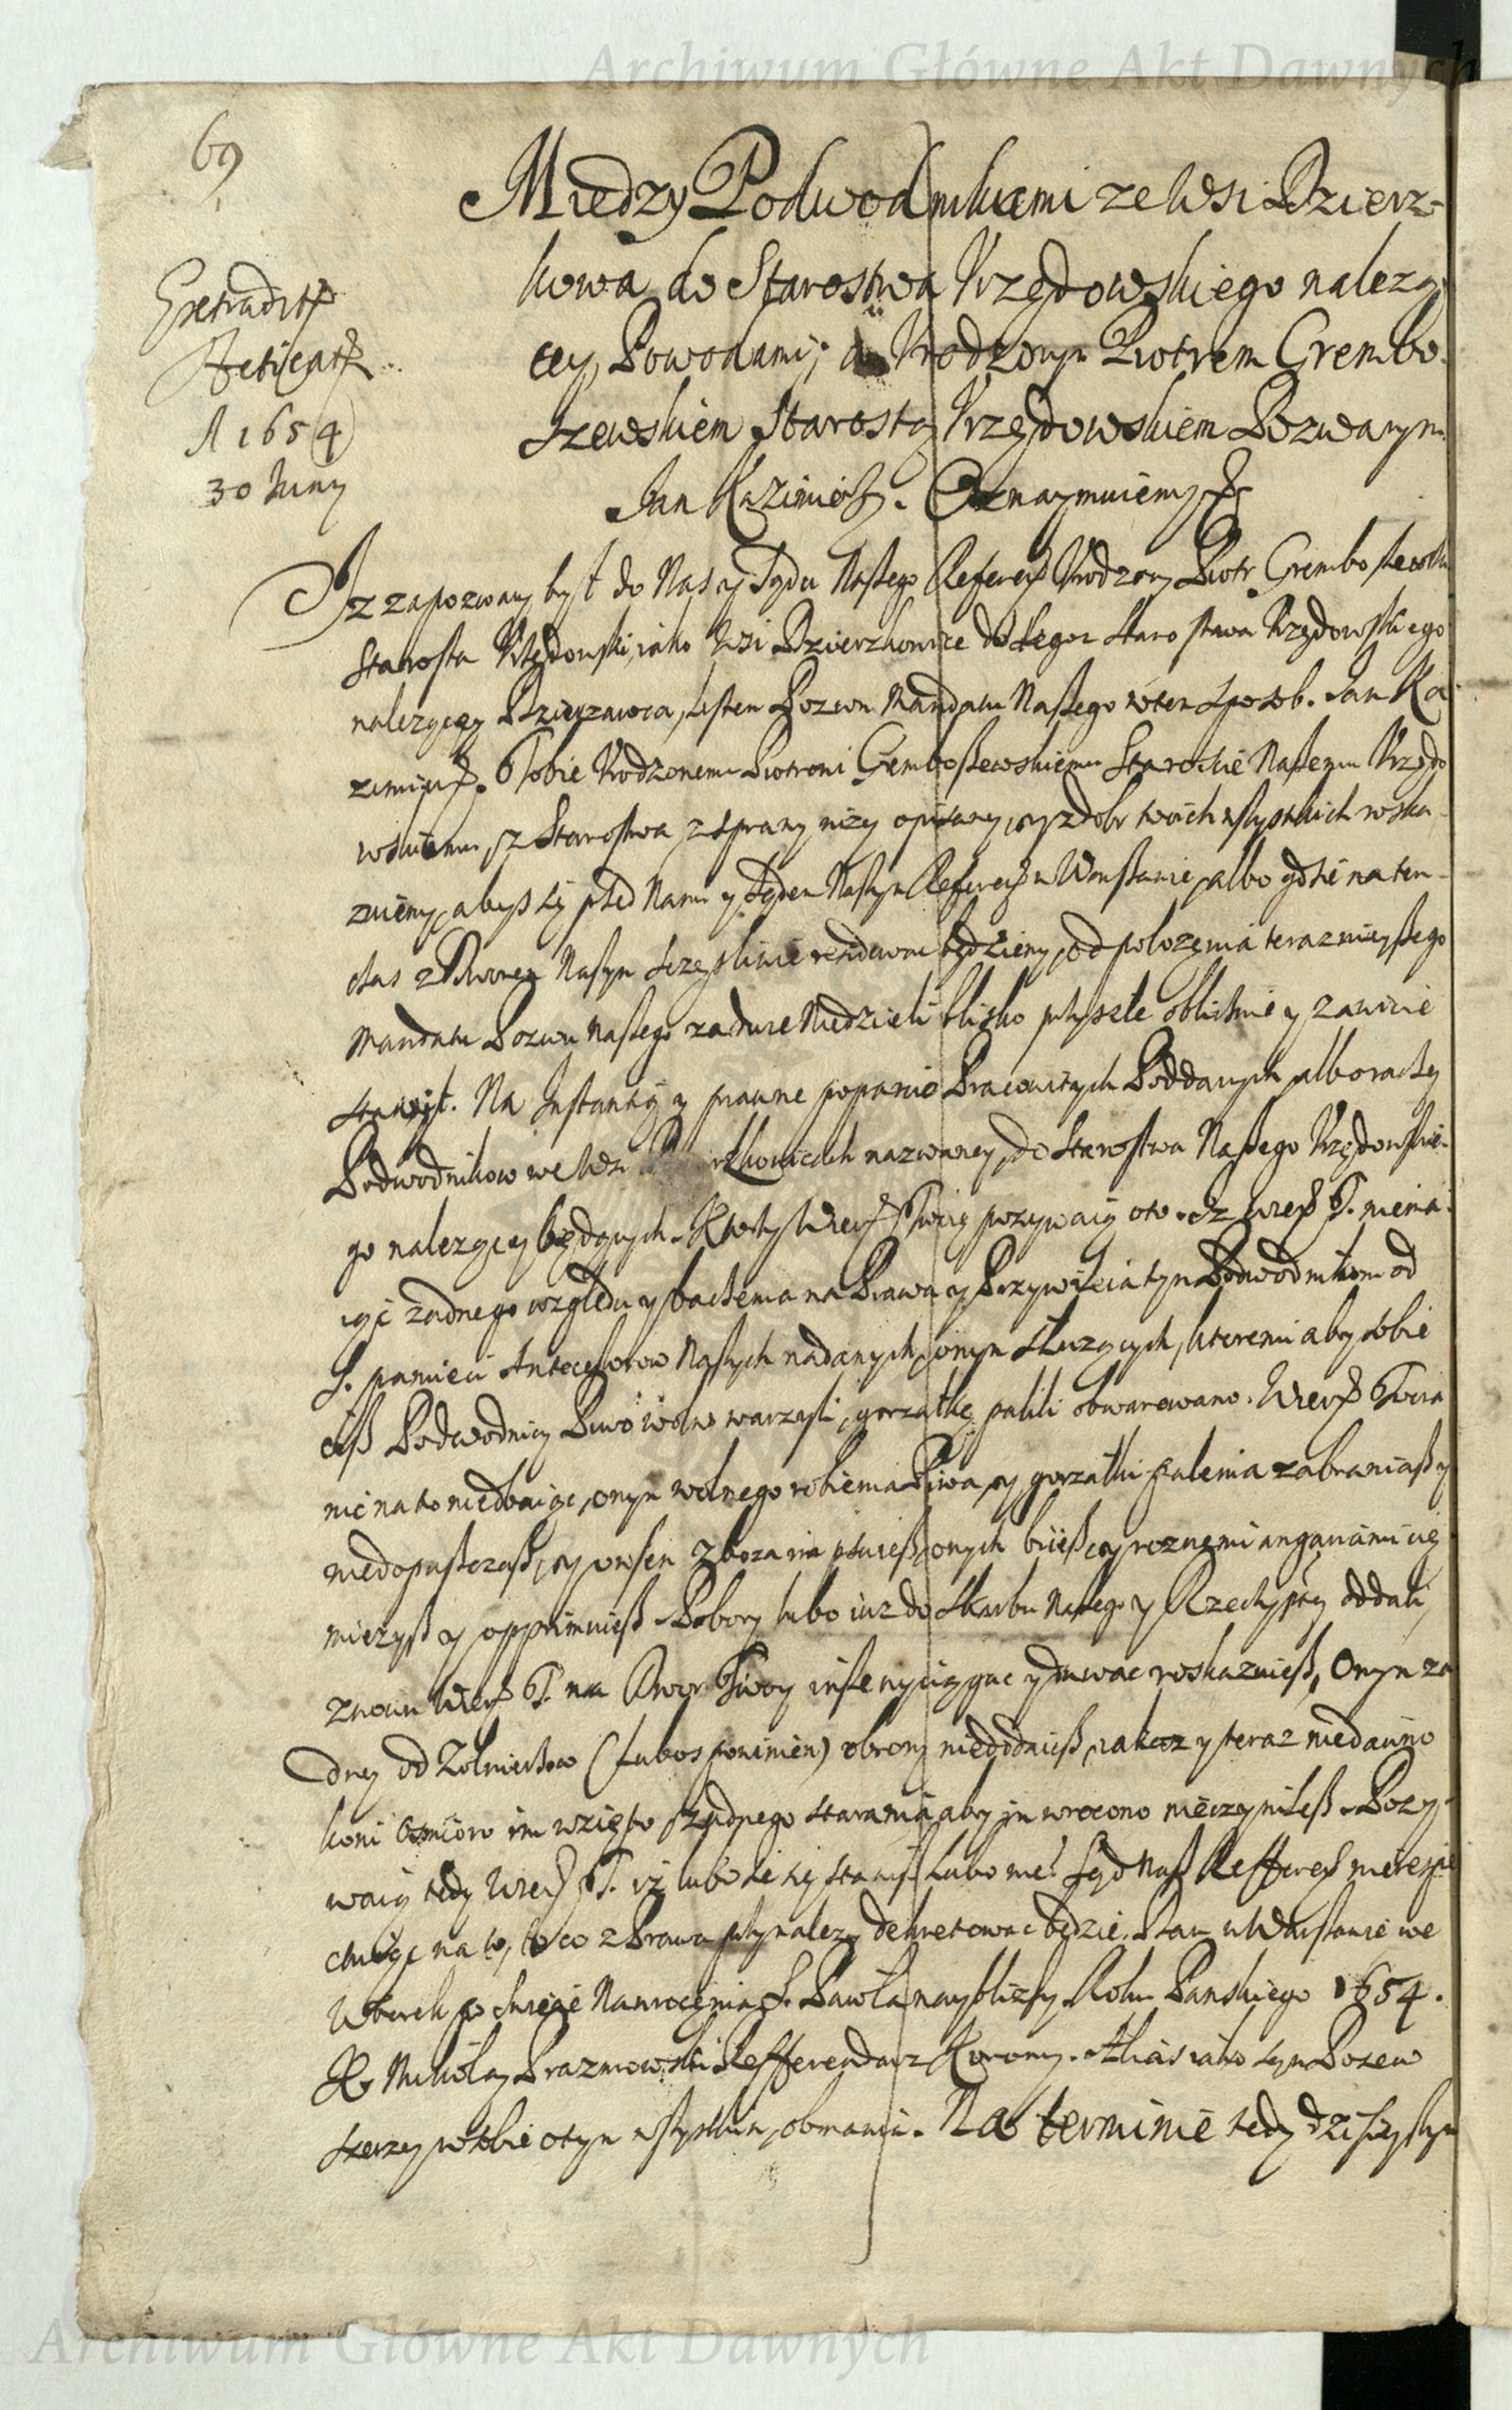 Archiwum Główne Akt Dawnych
69
Miedzy Podwodnikami ze Wsi Dzierz-
kowa do Starostwa Vrzędowskiego nalezą
cey, Powodami; a Vrodzonym Piotrem Grembo-
szewskiem Starostą Vrzędowskiem Pozwanym
Extradit
A 1654
30 Juny
Jan Kazimierz. Oznaymuiemy
Iz zapozwany był do Nas y Sądu Naßego Referen Vrodzony Piotr Gremboßewski
Starosta Vrzędowski, iako Wsi Dzierzkowice do tegoz Starostwa Vrzędowskiego
nalezącey Dzierzawca, listem Pozwu Mandatu Naßego w ten sposob. Jan Ka
zimierz. Tobie Vrodzonemu Piotrowi Gremboßewskiemu Staroscie Naßemu Vrzędo
wskiemu, z Starostwa z sprawy nizy opisany, y z dobr twoich wßystkich roska-
zuiemy, abyß się przed Nami y Sądem Naßym Referen w Warßawie, albo gdzie na ten-
czas z Dworem Naßym szczęsliwie residowac będziemy, od polozenia teraznieyßego
Mandatu Pozwu Naßego za dwie Niedzieli blisko przyszłe oblicznie y zawicie
stawił. Na Instantią y prawne poparcie Pracowitych Poddanych, albo raczey
Podwodnikow we Wsi rzkowicach nazwaney, do Starostwa Naßego Vrzędowskie-
go nalezącey będących. Ktorzy Wier Twą pozywaią oto. Iz Wier T. niema-
iąc zadnego względu y baczenia na Prawa y Przywileia tym Podwodnikom od
S. pamieci Antecessorow Naßych nadanych, onym słuzących, ktoremi aby sobie
ciß Podwodnicy Piwo wolno warzyli, gorzałkę palili obwarowano. Wier Twa
nic na to niedbaiąc, onym wolnego robienia Piwa, y gorzałki palenia zabraniaß y
niedopußczaß, y onßem zboza im psuieß, onych biieß, y roznemi angariami cię
mięzyß y opprimuieß. Pobory lubo iuz do Skarbu Naßego y Rzeczyptey oddali,
znowu Wier T. na Dwor Twoy insze wyciągac y dawac roskazuieß, Onym za
dney od Zołnierzow (lubos powinien) obrony niedodaieß, iakoz y teraz niedawno
koni osmioro im wzięto zadnego starania aby im wrocono nieczyniłeß. Pozy-
waią tedy Wier T. iz lubo się staniß lubo nie: Sąd Naß Refferen nierespe
ctuiąc na to, to co z Prawa przynalezy dekretowac będzie. Dan w Warßawie we
Wtorek po Swięcie Nawrocenia S. Pawła naybliższy Roku Panskiego 1654.
X. Mikołay Prazmowski Refferendarz Koronny. Alias iako tym Pozew
szerzey w sobie o tym wßystkim, obmawia. Na terminie tedy dzisieyßym
Archiwum Główne Akt Dawnych